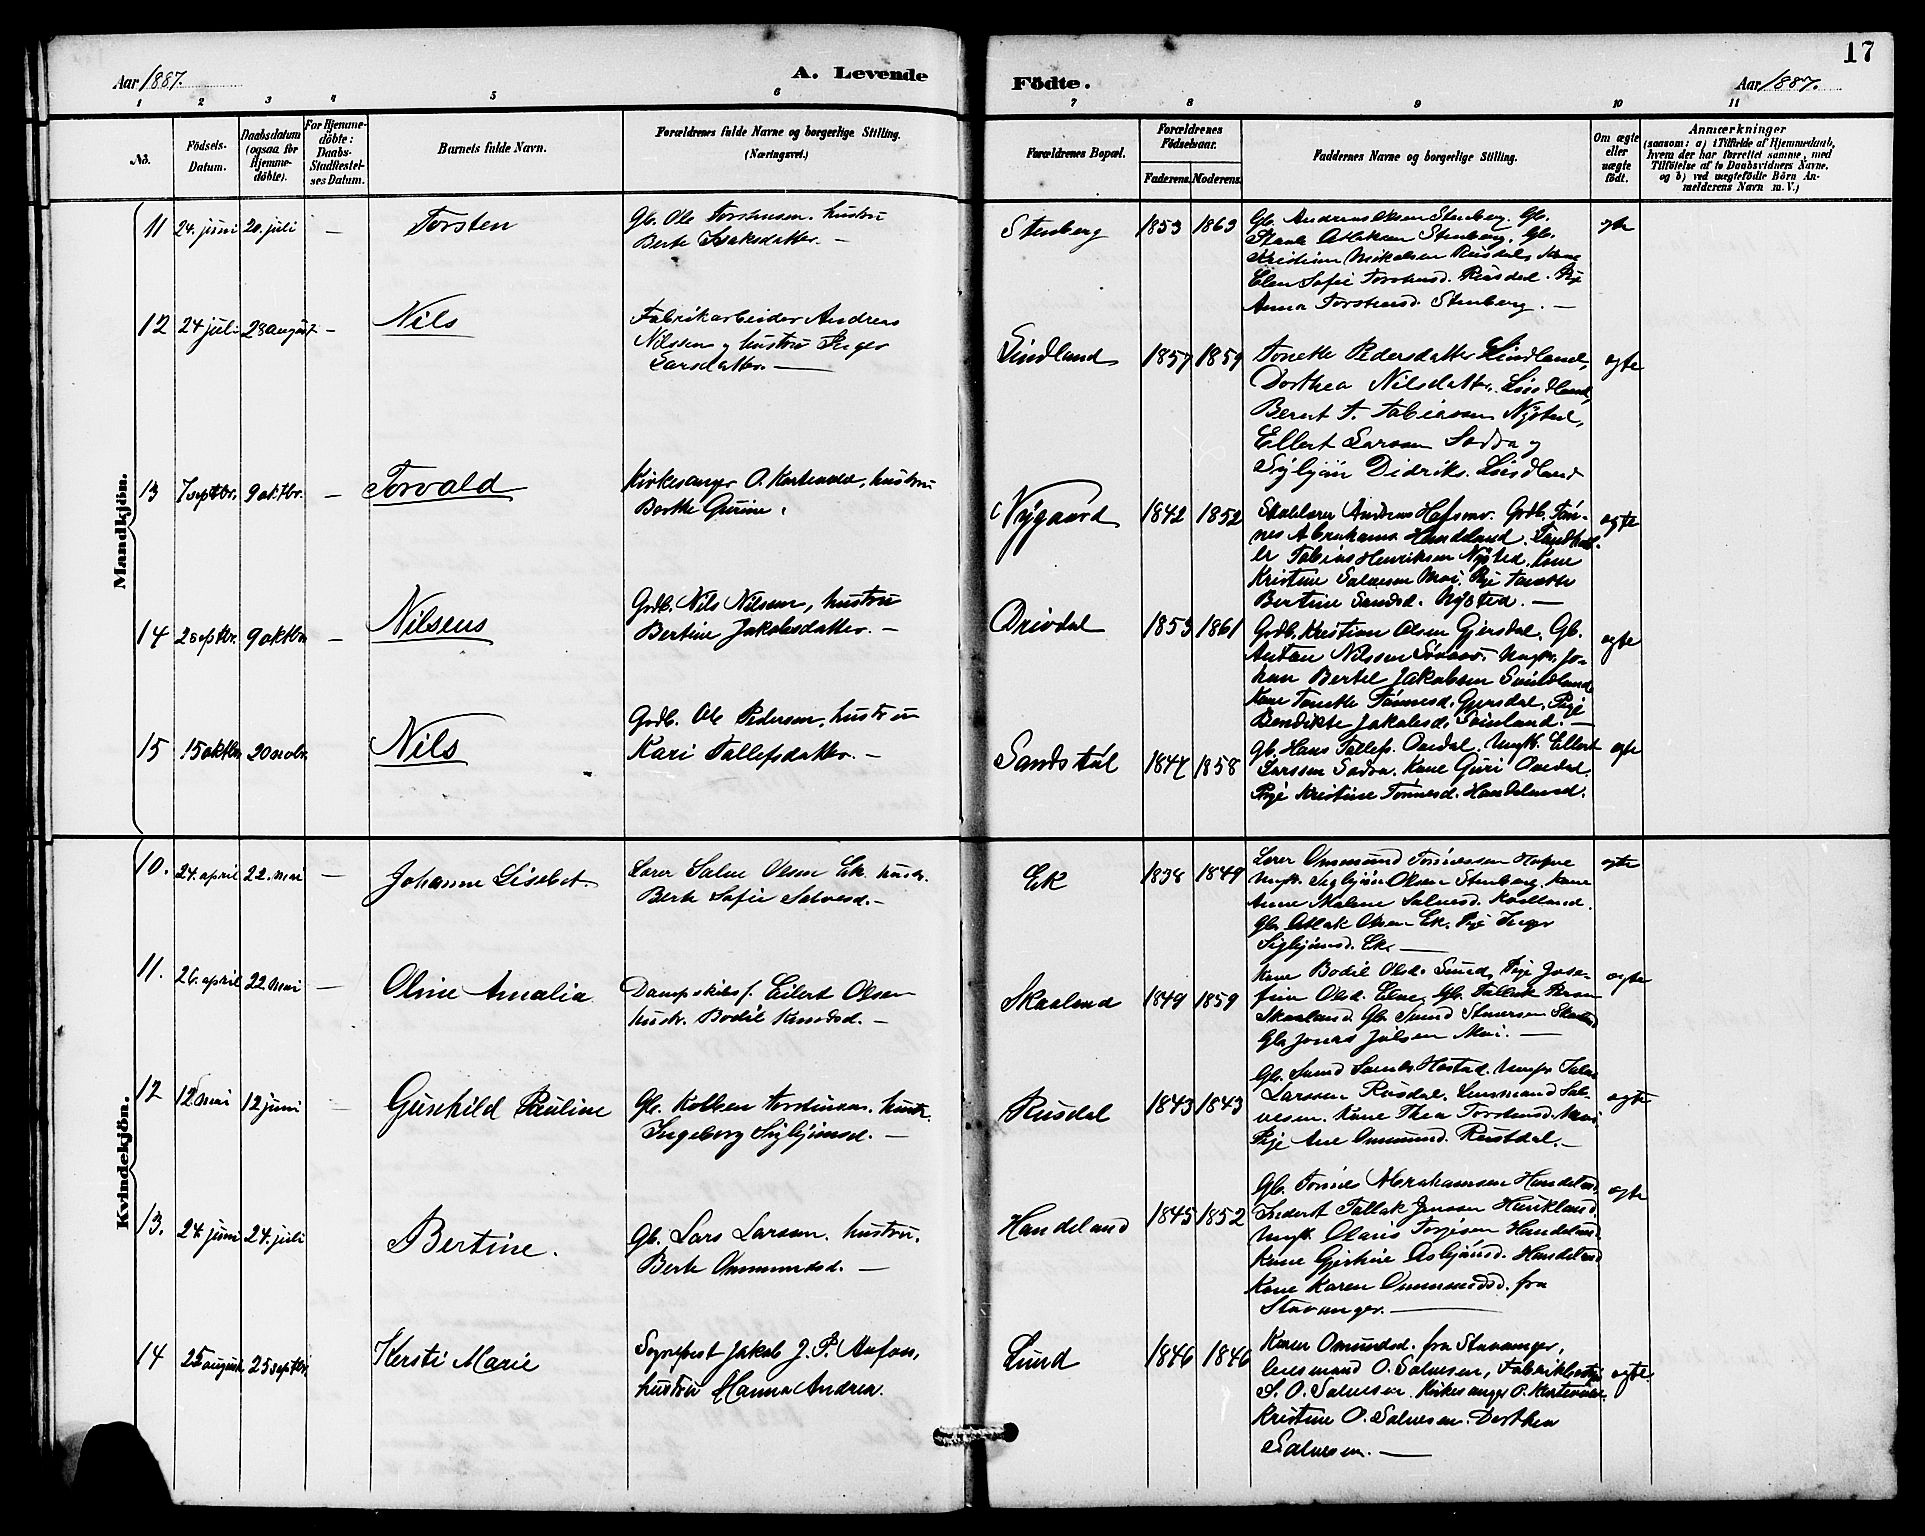 17
Aar 1887.
A. Levende
Födte.
Aar 1887.
1 2 3 4 5 6 7 8 9 10 11
No.
Födsels-Datum.
Daabsdatum (ogsaa for Hjemmedöbte).
For Hjemmedöbte: Daabs-Stadfestelses Datum.
Barnets fulde Navn.
Forældrenes fulde Navne og borgerlige Stilling.
(Næringsvei.)
Forældrenes Bopæl.
Forældrenes Födselsaar.
Faderens. Moderens.
Faddernes Navne og borgerlige Stilling.
Om ægte eller uægte født.
Anmærkninger
(saasom: a) i Tilfælde af Hjemmedaab,
hvem der har forrettet samme, med
Tilföielse af to Daabsvidners Navne,
og b) ved uægtefödte Börn An-
melderens Navn m. V.)
Mandkjön.
11 24. juni 20. juli — Torsten
Gb. Ole Torstensen. hustru
Berte Isaksdatter. —
Stenberg 1853 1863
Gb. Andreas Olsen Stenberg. Gb.
Atlaksen Stenberg. Gb.
Kristian Mikalsen Rusdal, Kone
Elen Sofie Torstensd. Rusdal. Pige
Anna Torstensd. Stenberg. —
12 24 juli 28 august — Nils
Fabrikarbeider Andreas
Nilssen og hustru Inger
Larsdatter. —
Lindland 1857 1859
Tonette Pedersdatter Lindland,
Dorthea Nilsdatter. Lindland,
Bernt T. Tobiassen Nysted,
Ellert Larssen Sadra og
Sigbjön Didriks. Lindland
ægte
13 7 septbr. 9 oktbr. — Torvald
Kirkesanger O. Kartevold, hustru
Berthe Gurine.
Nygaard 1842 1852
Skolelærer Andreas Hafsmo. Grdb. Tön-
nes Abrahams Handeland. Landhand-
ler Tobias Henriksen Nysted. Kone
Kristine Salvesen Moi. Pige Tonette
Bertine Nysted. —
ægte
14 2 septbr. 9 oktbr — Nilsens
Grdb. Nils Nilssen, hustru
Bertine Jakobsdatter. —
Drivdal 1853 1861
Grdb. Kristian Olsen Gjersdal. Gb.
Anton Nilssen Ungk. Jo-
han Bertel Jakobsen Svindland
Kone Tonette Tönnesd. Gjersdal, Pige
Bendikte Jakobsd. Svinland. —
ægte
15 15 oktbr 20 novbr. Nils
Grdb. Ole Pedersen, hustru
Kari Tallefsdatter. —
Sandstöl 1844 1858
Gb. Hans Tallefs. Ovedal. Ungk. Ellert
Larssen Sadra. Kone Guri Ovedal.
Pige Kristine Tönnesd. Handeland.
ægte
Kvindekjön.
10. 24. april 22. mai — Johanne Lisebet.
Lærer Salve Olsen Ek. hustr.
Berte Sofie Salvesd. —
Ek 1838 1849
Lærer Ommund Tönnessen
Ungk. Sigbjön Olsen Stenberg. Kone
Anne Malene Salvesd. Kvelland.
Gb. Atlak Olsen Ek. Pige Inger
Sigbjönsd. Ek. —
ægte
11. 26. april 22 mai — Oline Amalia
Dampskibsf. Eilert Olsen
hustr. Bodil Knudsd. —
Skaaland 1849 1859
Kone Bodil Olsd. Pige Jose-
fine Olsd. Gb. Tallak
Skaaland. Gb.
Gb. Jonas Moi. —
ægte
12 12 mai 12 juni — Gunhild Pauline
Gb. Kolben hustr.
Ingeborg Sigbjönsd. —
Rusdal 1843 1843
Gb. Ungk.
Larssen Rusdal. Sal-
vesen. Kone Thea Torstensd. Moi
Pige Ane Ommund. Rustdal. —
ægte
13. 24. juni 24. juli Bertine.
Gb. Lars Larssen. hustru.
Berte Ommundsd. —
Handeland 1845 1852
Gb. Tönnes Abrahamsen Handeland.
Inderst Tallak Jenssen Haukland.
Ungk. Olaus Torgisen Handeland.
Kone Asbjönsd. Handeland
Kone Karen Ommundsd. fra
Stavanger. —
ægte
14 25 august 25 septbr. Kersti Marie
Sogneprest Jakob J. P. Aafoss,
hustru Hanna Andrea.
Lund 1846 1846
Karen Omundsd. fra Stavanger,
O. Salvesen,
S. O. Salvesen. Kirkesanger O. Kartevold.
Kristine O. Salvesen. Dorthea
Salvesen. —
ægte.